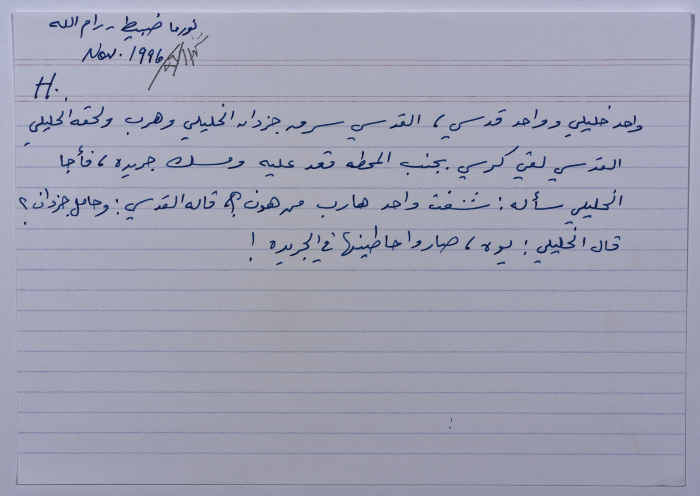 نورما ضبيط - رام الله
Nov. 1996
H.
واحد خليلي وواحد قدسي، القدسي سرق جزدان الخليلي وهرب ولحقه الخليلي
القدسي لقي كرسي بجنب المحطه قعد عليه ومسك جريده، فأجا
الخليلي سأله: شفت واحد هارب من هون؟ قاله القدسي: وحامل جزدان؟
قال الخليلي: يوه، صاروا حاطينها في الجريده!